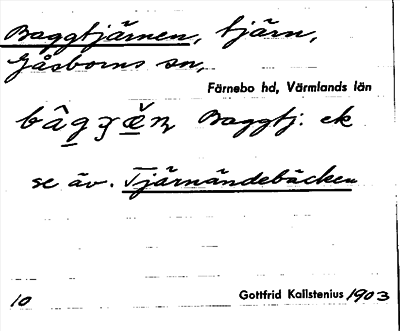 Baggtjärnen, tjärn,
Gåsborns sn,
Färnebo hd, Värmlands län
Baggtj. ek
se äv. Tjärnändebäcken
10 Gottfrid Kallstenius 1903